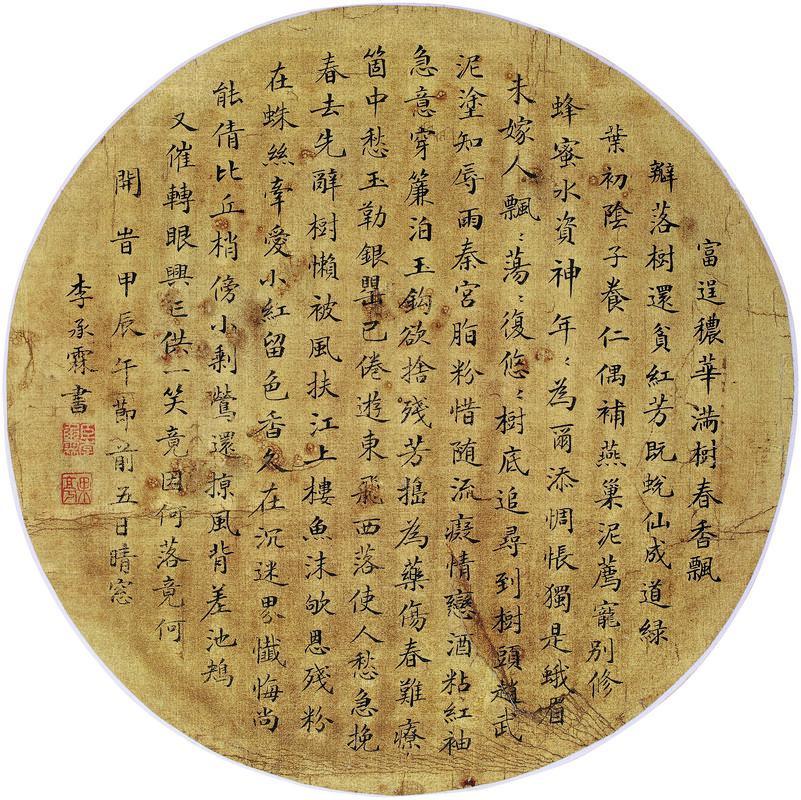 富逞穠華滿樹春香飄
瓣落樹還貧紅芳既蛻仙成道綠
葉初陰子養仁偶補燕巢泥薦寵別修
蜂蜜水資神年〻為爾添惆悵獨是蛾眉
未嫁人飄〻蕩〻復悠〻樹底追尋到樹頭趙武
泥塗知辱雨秦宮脂粉惜随流癡情戀酒粘紅袖
急意穿簾泊玉鈎欲捨残芳搗為藥傷春難療
箇中愁玉勒銀罌已倦遊東飛西落使人愁急挽
春去先辭樹懶被風扶江上樓魚沫吹恩残粉
在蛛絲牽愛小紅留色香久在沉迷界懺悔尚
能倩比丘梢傍小剩鶯還掠風背差池鴆
又催轉眼興亡供一笑竟因何落竟何
開旹甲辰午節前五日晴窓
李承霖書